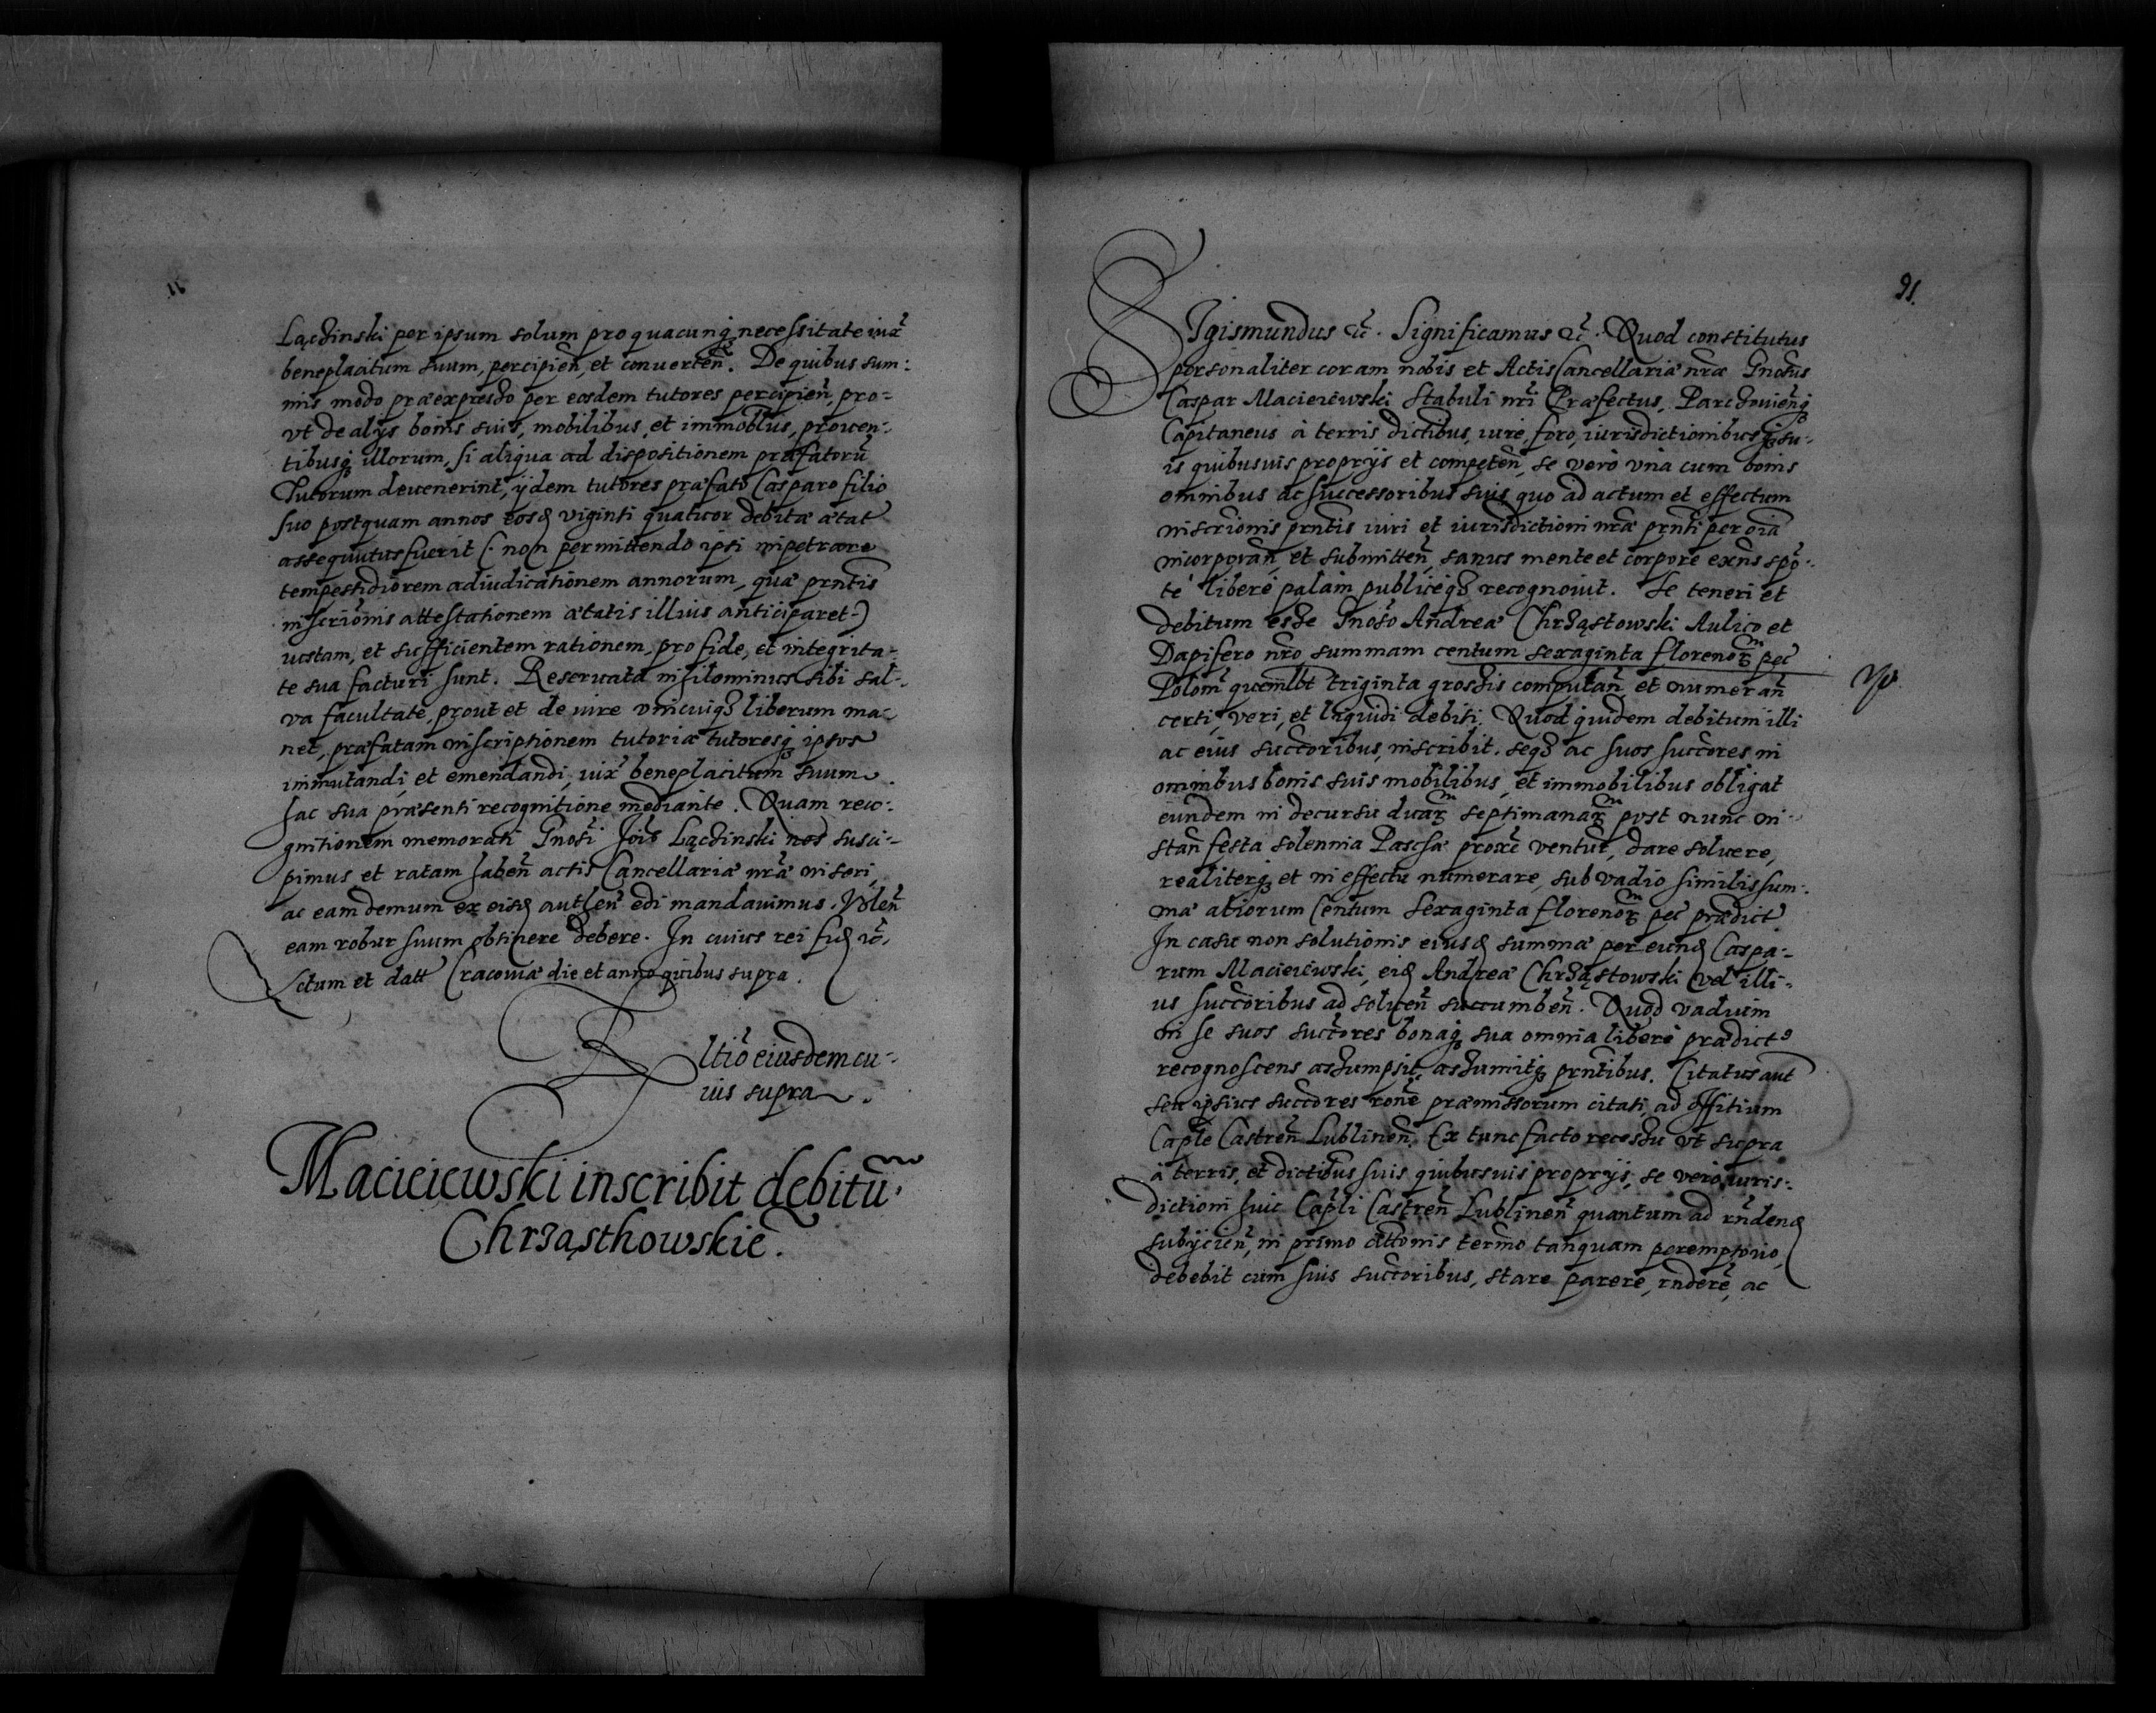 Lączinski per ipsum solum pro quacunq necessitate iux̃
beneplacitum suum, percipieñ, et conuerteñ. De quibus sum:
mis modo præexpresso per eosdem tutores percipieñ, pro=
vt de alijs bonis suis, mobilibus, et immob̃lbus, prouen:
tibusq illorum, si aliqua ad dispositionem præfatorũ
Tutorum deuenerint, ijdem tutores præfato Casparo filio
suo postquam annos eosd viginti quatuor debitæ ætat
assequutus fuerit (: non permittendo ipsi impetrare
tempestidiorem adiudicationem annorum, quæ prñtis
inscrĩonis attestationem ætatis illius anticiparet :)
iustam, et sufficientem rationem, pro fide, et integrita-
te sua facturi sunt. Reseruata nihilominus sibi sal-
va facultate, prout et de iure vnicuiq liberum ma-
net, præfatam inscriptionem tutoriæ tutoresq ipsos
immutandi, et emendandi, iux̃ beneplacitum suum
hac sua præsenti recognitione mediante. Quam reco:
gnitionem memorati Gnosi Joĩs Lączinski nos susci-
pimus et ratam habeñ actis Cancellariæ nr̃æ inseri,
ac eam demum ex eisd autheñ edi mandauimus. Voleñ
eam robur suum obtinere debere. In cuius rei fid ꝛc̃.
Actum et datt Cracouiæ die et anno quibus supra.
Rl̃tio eiusdem cu-
ius supra.
Macieiewski inscribit debitũ
Chrząsthowskie.
91.
SIgismundus ꝛc̃. Significamus ꝛc̃. Quod constitutus
personaliter coram nobis et Actis Cancellariæ nr̃æ Gnosus
Caspar Macieiewski Stabuli nr̃i Præfectus, Parczouieñq
Capitaneus à terris dictibus, iure, foro, iurisdictionibusq su-
is quibusuis proprijs et competeñ, se vero vna cum bonis
omnibus ac successoribus suis quo ad actum et effectum
inscrionis prñtis iuri et iurisdictioni nr̃æ prñti per oĩa
incorporañ, et submitteñ, sanus mente et corpore exñs spõ-
te libere palam publiceq recognouit. Se teneri et
debitum esse Gnoso Andreæ Chrząstowski Aulico et
Dapifero nr̃o summam centum sexaginta florenoꝝ pec̃
Polom quemlbt triginta grossis computañ et numerañ
certi, veri, et liquidi debiti. Quod quidem debitum illi
ac eius succ̃oribus, inscribit. seq ac suos succ̃ores in
omnibus bonis suis mobilibus, et immobilibus obligat
eundem in decursu duaꝝ septimanaꝝ post nunc in-
stañ festa solennia Paschæ proxẽ ventuř, dare soluere,
realiterq et in effectu numerare, sub vadio similis sum:
mæ aliorum Centum Sexaginta florenoꝝ pec̃ prædict
In casu non solutionis eiusd summæ per eund Caspa-
rum Macieiewski, eid Andreæ Chrząstowski vel illi-
us succ̃oribus ad solueñ succumbeñ. Quod vadium
in se suos succ̃ores bonaq sua omnia libere prædict
recognoscens assumpsit, assumitq prñtibus. Citatus aut̃
seu ipsius succ̃ores ronẽ præmissorum citati, ad offitium
Caple Castreñ Lublineñ. Ex tunc facto recessu vt supra
à terris, et dictibus suis quibusuis proprijs, se vero iuris:
dictioni huic Capli Castreñ Lublineñ quantum ad rñdend
subijcieñ, in primo cittonis termo tanquam peremptorio,
debebit cum suis succ̃oribus, stare parere, rñdere, ac